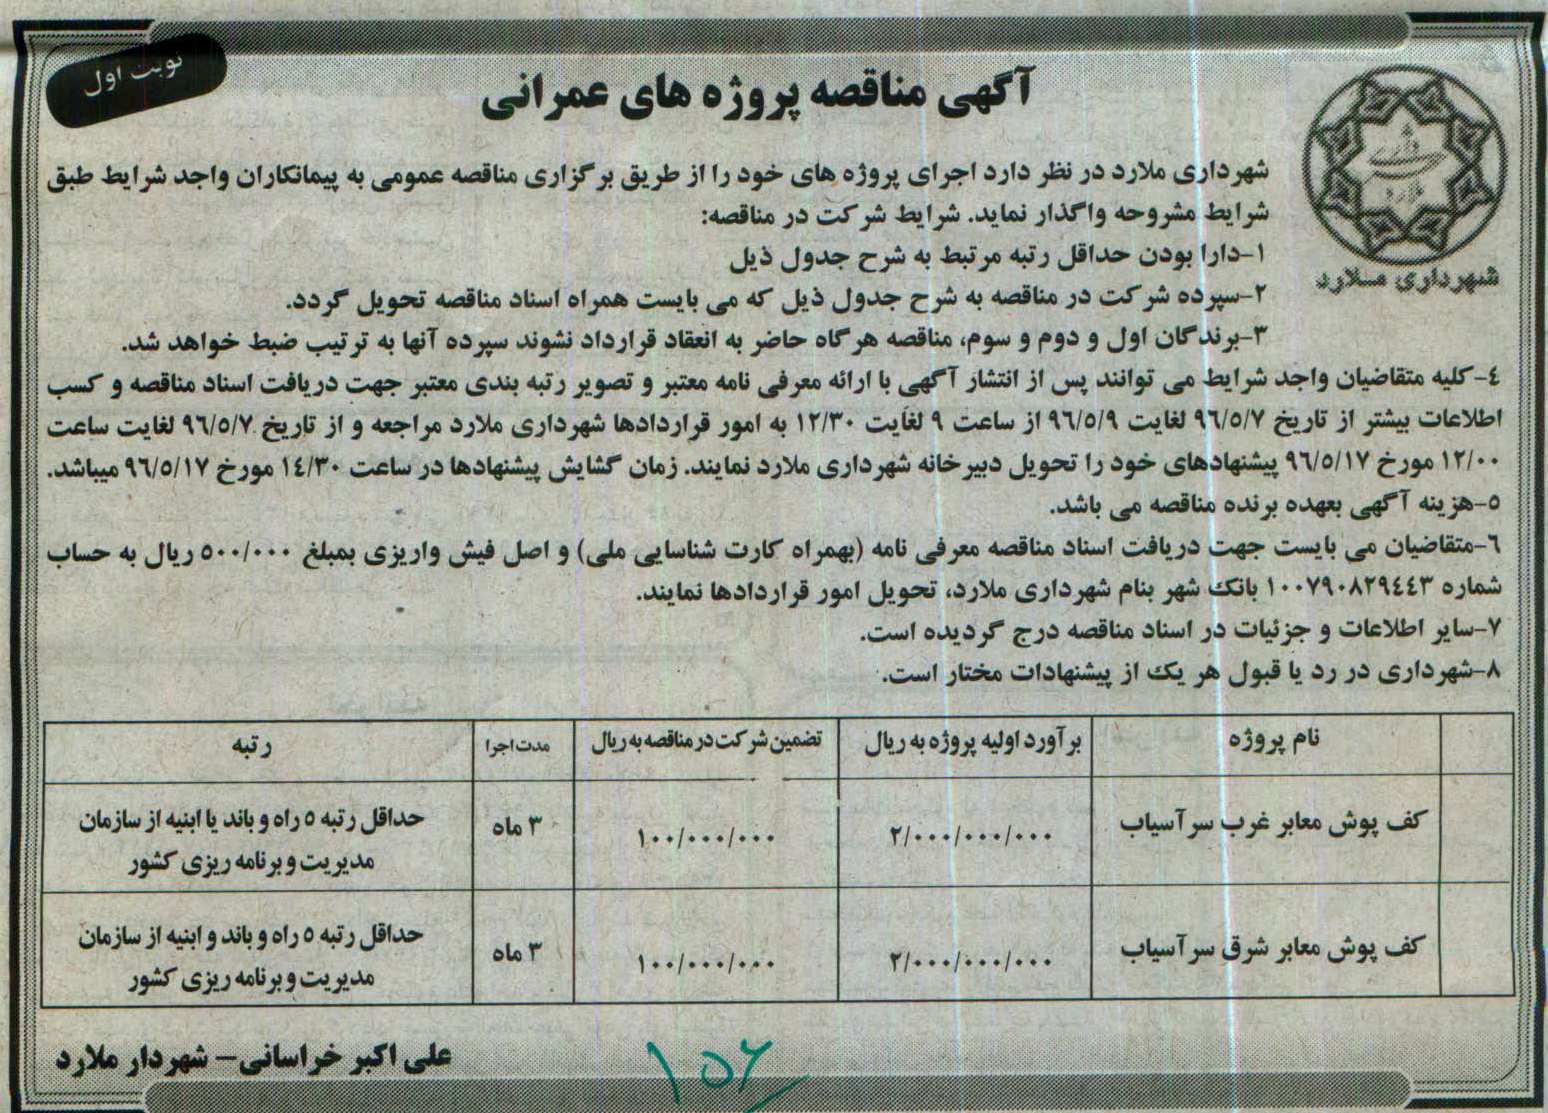 نوبت اول
آگهی مناقصه پروژه های عمرانی
شهرداری ملارد
شهرداری ملارد در نظر دارد اجرای پروژه های خود را از طریق برگزاری مناقصه عمومی به پیمانکاران واجد شرایط طبق
شرایط مشروحه واگذار نماید. شرایط شرکت در مناقصه:
۱-دارا بودن حداقل رتبه مرتبط به شرح جدول ذیل
۲-سپرده شرکت در مناقصه به شرح جدول ذیل که می بایست همراه اسناد مناقصه تحویل گردد.
۳-برندگان اول و دوم و سوم، مناقصه هرگاه حاضر به انعقاد قرارداد نشوند سپرده آنها به ترتیب ضبط خواهد شد.
٤-کلیه متقاضیان واجد شرایط می توانند پس از انتشار آگهی با ارائه معرفی نامه معتبر و تصویر رتبه بندی معتبر جهت دریافت اسناد مناقصه و کسب
اطلاعات بیشتر از تاریخ ۹٦/٥/۷ لغایت ۹٦/٥/۹ از ساعت ۹ لغایت ۱۲/۳۰ به امور قراردادها شهرداری ملارد مراجعه و از تاریخ ۹٦/٥/۷ لغایت ساعت
۱۲/۰۰ مورخ ۹٦/٥/۱۷ پیشنهادهای خود را تحویل دبیرخانه شهرداری ملارد نمایند. زمان گشایش پیشنهادها در ساعت ۱٤/۳۰ مورخ ۹٦/٥/۱۷ میباشد.
٥-هزینه آگهی بعهده برنده مناقصه می باشد.
٦-متقاضیان می بایست جهت دریافت اسناد مناقصه معرفی نامه (بهمراه کارت شناسایی ملی) و اصل فیش واریزی بمبلغ ٥۰۰/۰۰۰ ریال به حساب
شماره ۱۰۰۷۹۰۸۲۹٤٤۳ بانک شهر بنام شهرداری ملارد، تحویل امور قراردادها نمایند.
۷-سایر اطلاعات و جزئیات در اسناد مناقصه درج گردیده است.
۸-شهرداری در رد یا قبول هر یک از پیشنهادات مختار است.
نام پروژه برآورد اولیه پروژه به ریال تضمین شرکت در مناقصه به ریال مدت اجرا رتبه
کف پوش معابر غرب سرآسیاب ۲/۰۰۰/۰۰۰/۰۰۰ ۱۰۰/۰۰۰/۰۰۰ ۳ ماه حداقل رتبه ٥ راه و باند یا ابنیه از سازمان
مدیریت و برنامه ریزی کشور
کف پوش معابر شرق سرآسیاب ۲/۰۰۰/۰۰۰/۰۰۰ ۱۰۰/۰۰۰/۰۰۰ ۳ ماه حداقل رتبه ٥ راه و باند و ابنیه از سازمان
مدیریت و برنامه ریزی کشور
علی اکبر خراسانی- شهردار ملارد